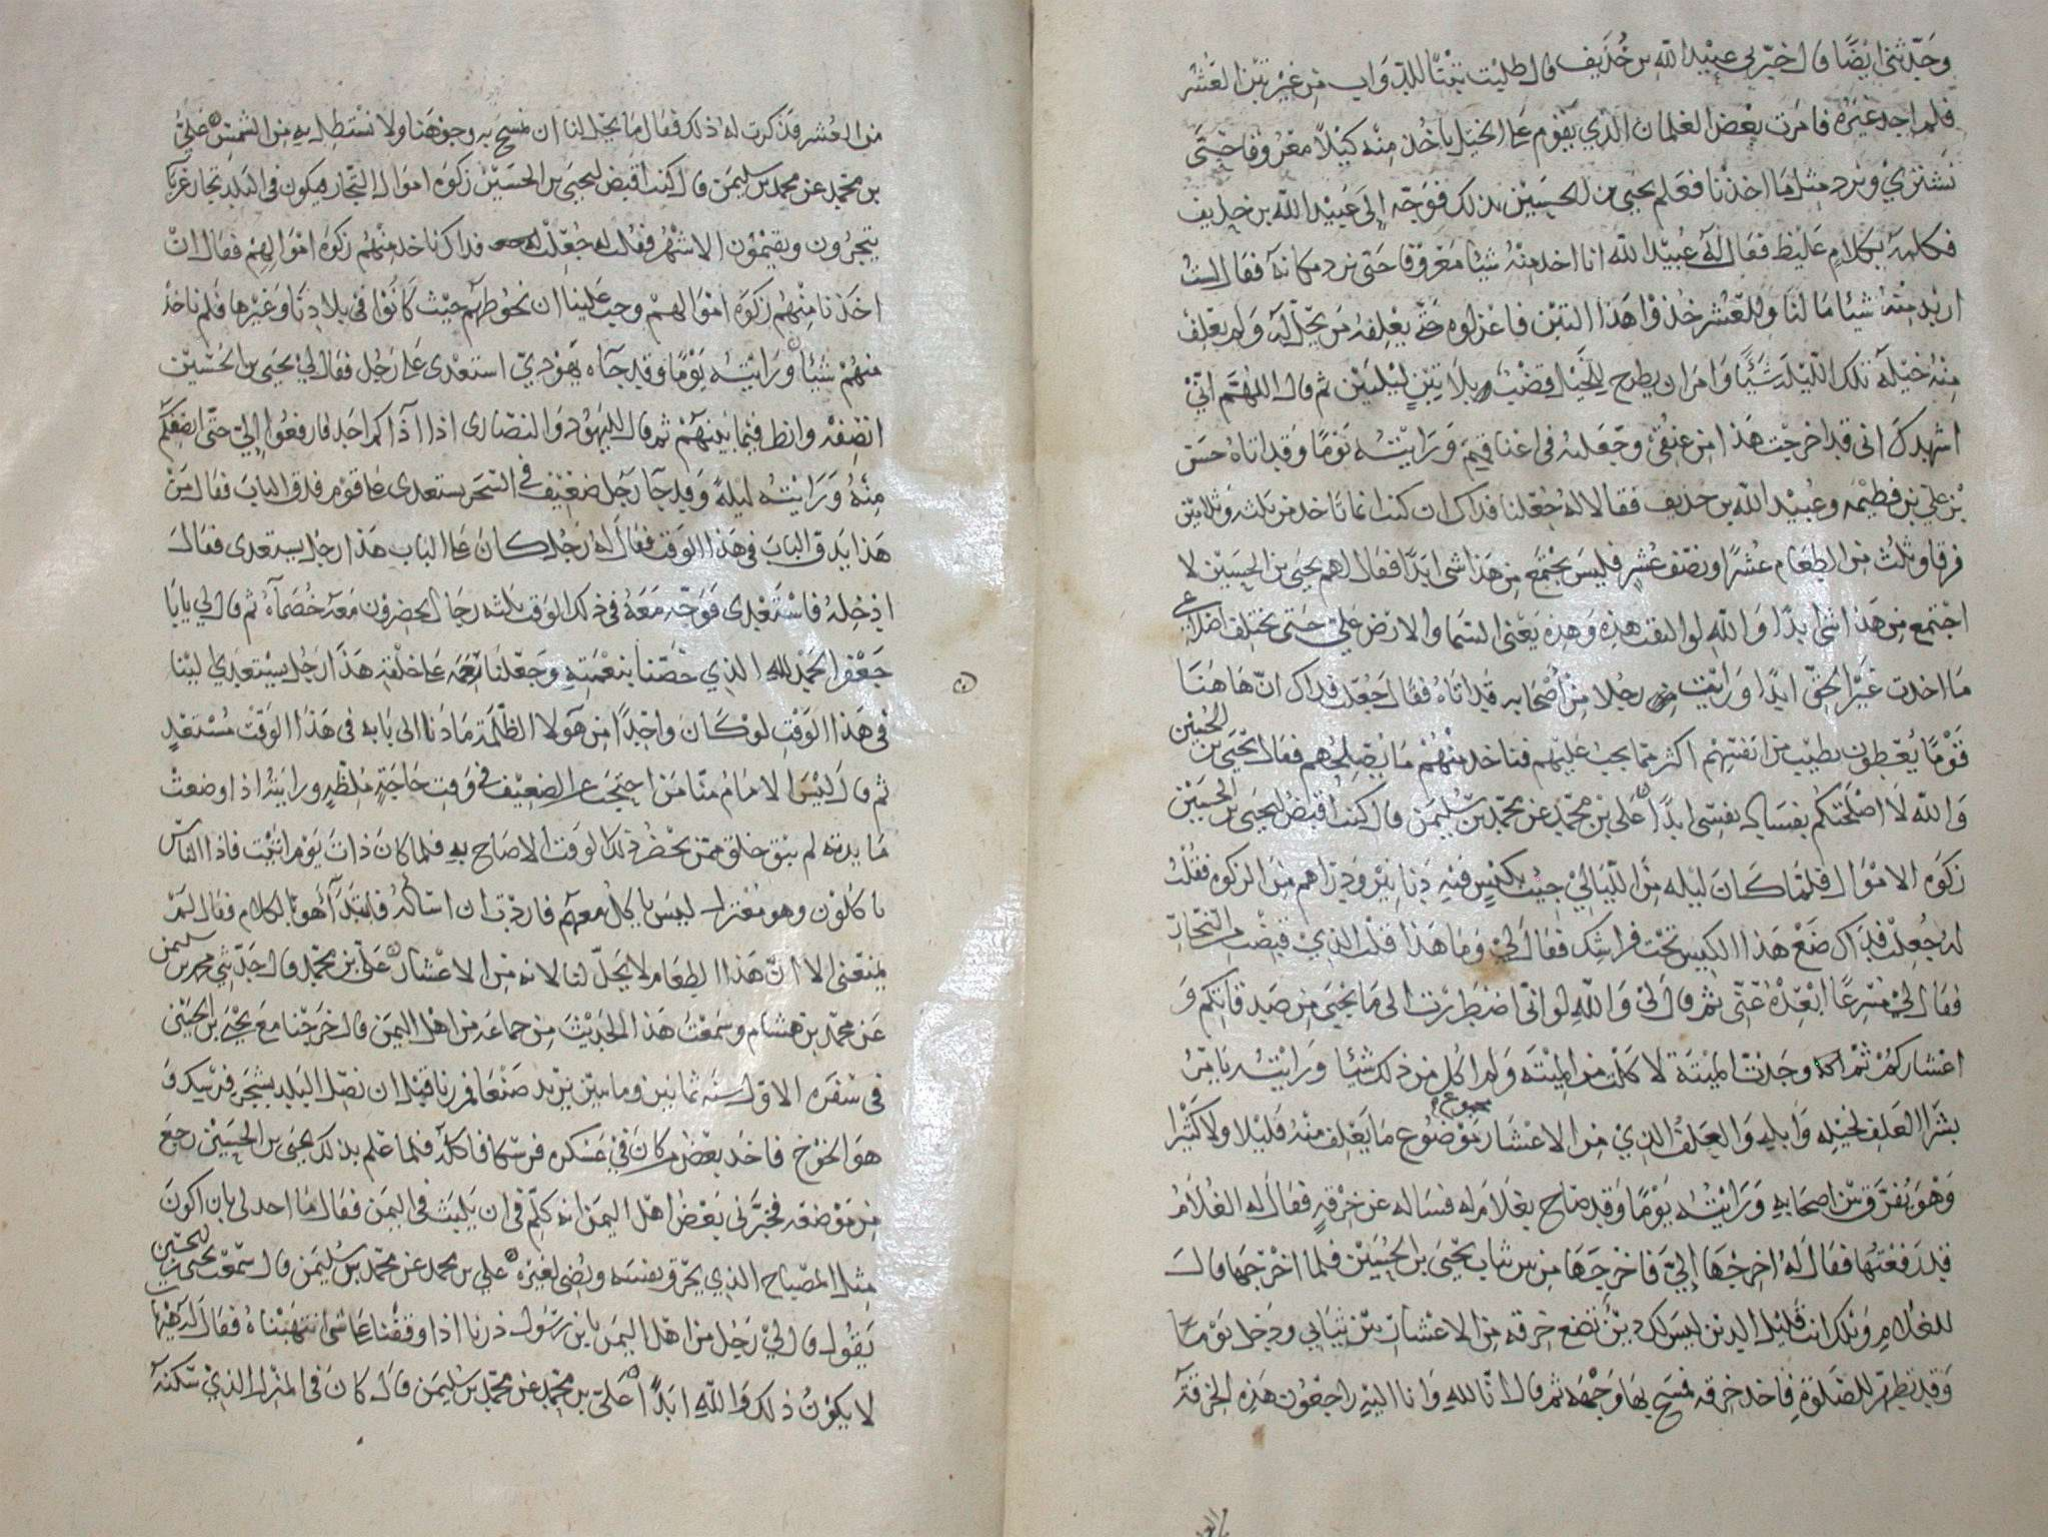 وحدثني ايضا قال خبرني عبيد الله بن حذيف قال طلبت تبنا للدواب من غير تبن العشر
فلم اجد غيره فامرت بعض الغلمان الذي يقوم على الخيل ياخذ منه كيلا معروفا حتى
نشتري ونرد مثل ما اخذنا فعلم يحيى بن الحسين بذلك فوجه الى عبيد الله بن حذيف
فكلمه بكلام غليظ فقال له عبيد الله انا اخذ منه شيئا معروفا حتى نرد مكانه فقال لست
اريد منه شيئا ما لنا وللعشر خذوا هذا التبن فاعزلوه حتى يعلفه من يحل له ولم يعلف
منه خيله تلك الليلة شيئا وامر ان يطرح للخيل قضب بلا تبن ليلتين ثم قال اللهم اني
اشهدك اني قد اخرجت هذا من عنقي وجعلته في اعناقهم ورايته يوما وقد اتاه حسن
بن علي بن فطيمه وعبيد الله بن حذيف فقالا له جعلنا فداك ان كنت انما تاخذ من ثلثه وثلاثين
فرقا وثلث من الطعام عشرا او نصف عشر فليس يجتمع من هذا شي ابدا فقال لهم يحيى بن الحسين لا
اجتمع من هذا شي ابدا والله لو التقت هذه وهذه يعني السما والارض علي حتى تختلف اضلاعي
ما اخذت غير الحق ابدا ورايت رجلا من اصحابه قد اتاه فقال جعلت فداك ان هاهنا
قوما يعطون بطيب من انفسهم اكثر مما يجب عليهم فناخذ منهم ما يصلحهم فقال يحيى بن الحسين
والله لا اصلحتكم بفساد نفسي ابدا علي بن محمد عن محمد بن سليمن قال كنت اقبض ليحيى بن الحسين
زكوه الاموال فلما كان ليله من الليالي جيت بكيس فيه دنانير ودراهم من الزكوه فقلت
له جعلت فداك ضع هذا الكيس تحت فراشك فقال لي وما هذا قلت الذي قبضت من التجار
فقال لي مسرعا ابعده عني ثم قال لي والله لو اني اضطررت الى ما يحيى من صدقاتكم و
اعشاركم ثم وجدت الميتة لاكلت من الميته ولم اكل من ذلك شيئا ورايته يامر
بشرا العلف لخيله وابله والعلف الذي من الاعشار موضوع ما يعلف منه قليلا ولا كثيرا
وهو يفرق بين اصحابه ورايته يوما وقد صاح بغلام له فساله عن خرقه فقال له الغلام
قد رفعتها فقال له اخرجها الي فاخرجها من بين ثياب يحيى بن الحسين فلما اخرجها قال
للغلام ويلك انت قليل الدين ليس لك دين تضع خرقه من الاعشار بين ثيابي ودخل يوما
وقد تطهر للصلوة فاخذ خرقه فمسح بها وجهه ثم قال انا لله وانا اليه راجعون هذه الخرقه
من العشر فذكرت له ذلك فقال ما يحل لنا ان نمسح به وجوهنا ولا نستظل به من الشمس علي
بن محمد عن محمد بن سليمن قال كنت اقبض ليحيى بن الحسين زكوة اموال التجار فيكون في البلد تجار غربا
يتجرون ويقيمون الاشهر فقلت له جعلت فداك ناخذ منهم زكوة اموالهم فقال ان
اخذنا منهم زكوة اموالهم وجب علينا ان نحوطهم حيث كانوا في بلادنا وغيرها فلم ناخذ
منهم شيئا ورايته يوما وقد جآه يهودي استعدى على رجل فقال لي يحيى بن الحسين
انصفه وانظر فيما بينهم ثم قال لليهود والنصارى اذا اذاكم احد فارفعوا الي حتى انصفكم
منه ورايته ليلة وقد جآ رجل ضعيف في السحر يستعدى على قوم فدق الباب فقال من
هذا يدق الباب في هذا الوقت فقال له رجل كان على الباب هذا رجل يستعدى فقال
ادخله فاستعدى فوجه معه في ذلك الوقت ثلثه رجال يحضرون معه خصمآه ثم قال لي يابا
جعفر الحمد لله الذي خصنا بنعمته وجعلنا رحمه على خلقه هذا رجل يستعدي الينا
في هذا الوقت لو كان واحدا من هولا الظلمة ما دنا الى بابه في هذا الوقت مستعد
ثم قال ليس الامام منا من احتجب عن الضعيف في وقت حاجة ملظه ورايته اذا وضعت
مايدته لم يبق خلق ممن يحضر ذلك الوقت الا صاح به فلما كان ذات يوم اتيت فاذا الناس
ياكلون وهو معتزل ليس ياكل معهم فاردت ان اساله فابتدآ هو بالكلام فقال لم
يمنعني الا ان هذا الطعام لا يحل لنا لانه من الاعشار علي بن محمد قال حدثني محمد بن سليمن
عن محمد بن هشام وسمعت هذا الحديث من جماعه من اهل اليمن قال خرجنا مع يحيى بن الحسين
في سفره الاول سنه ثمانين ومايتين يريد صنعا فمررنا قبل ان نصل البلد بشجر فرسك و
هو الخوخ فاخذ بعض من كان في عسكره فرسكا فاكله فلما علم بذلك يحيى بن الحسين رجع
من موضعه فخبرني بعض اهل اليمن انه كلم في ان يلبث في اليمن فقال ما احد لي بان اكون
مثل المصباح الذي يحرق نفسه ويضي لغيره علي بن محمد عن محمد بن سليمن قال سمعت يحيى بن الحسين
يقول قال لي رجل من اهل اليمن يا بن رسول ذرنا اذا وقفنا على شي انتهبناه فقال له
لا يكون ذلك والله ابدا علي بن محمد عن محمد بن سليمن قال كان في المنزل الذي سكنه